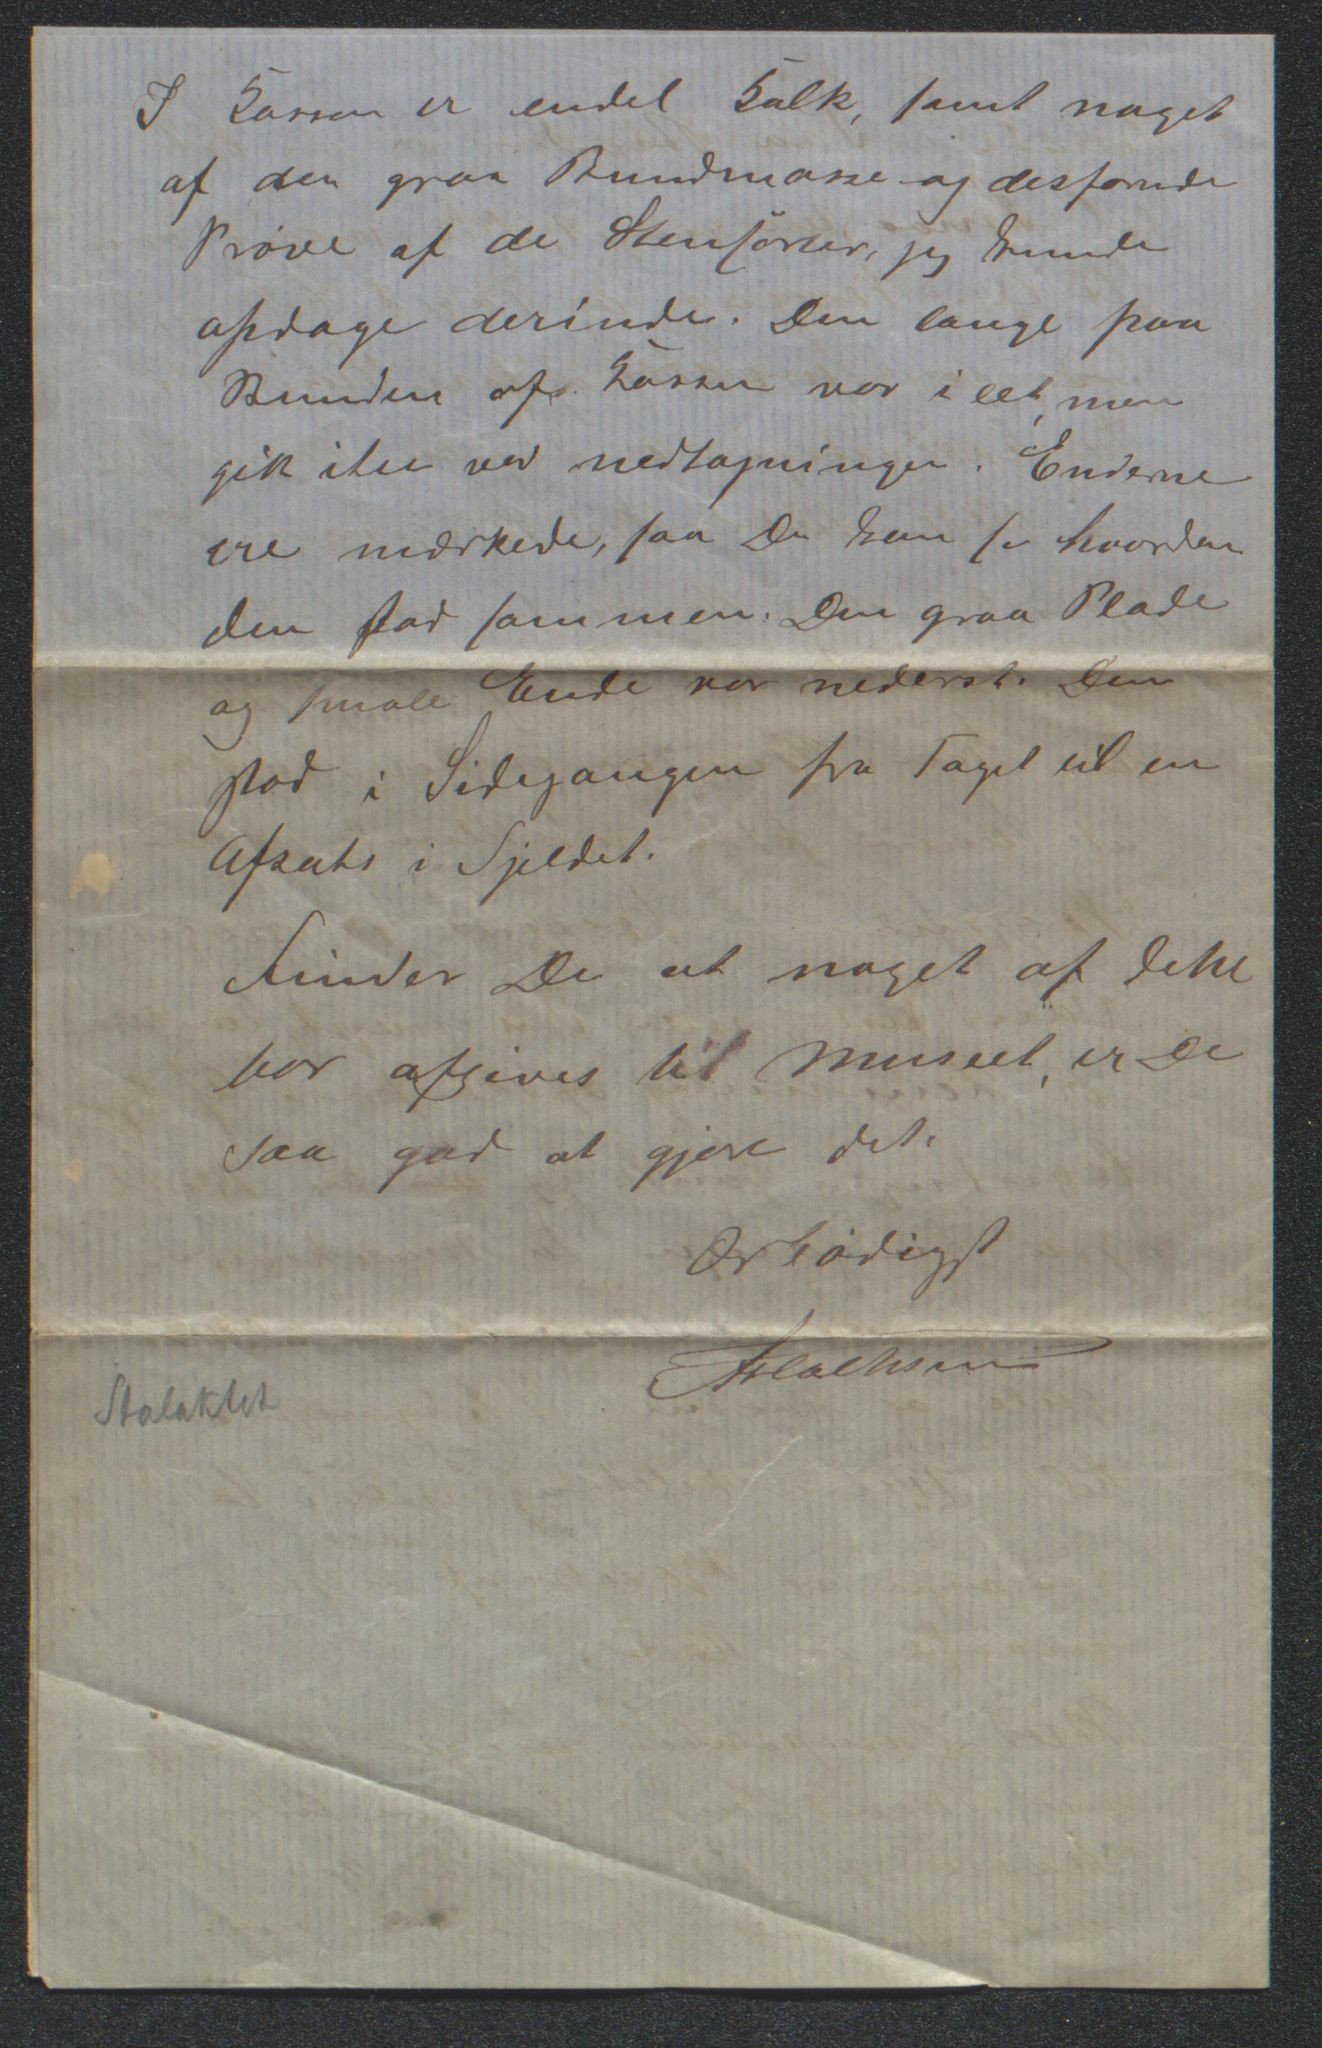 I Kassen er endel Kalk, samt noget
af den graa Bundmasse og desforude
Prøve af de Stensorter, jeg kunde
opdage derinde. Den lange paa
Bunden af Kassen var i eet, men
gik itu ved nedtagningen. Enderne
ere mærkede, saa De kan se hvordan
den stod sammen. Den graa Plade
og smale Ende var nederst. Den
stod i Sidegangen fra Taget til en
Afsats i Fjeldet.
Finder De at noget af dette
bør afgives til Museet, er De
saa god at gjøre det.
Ærbødigst
Stalaktit